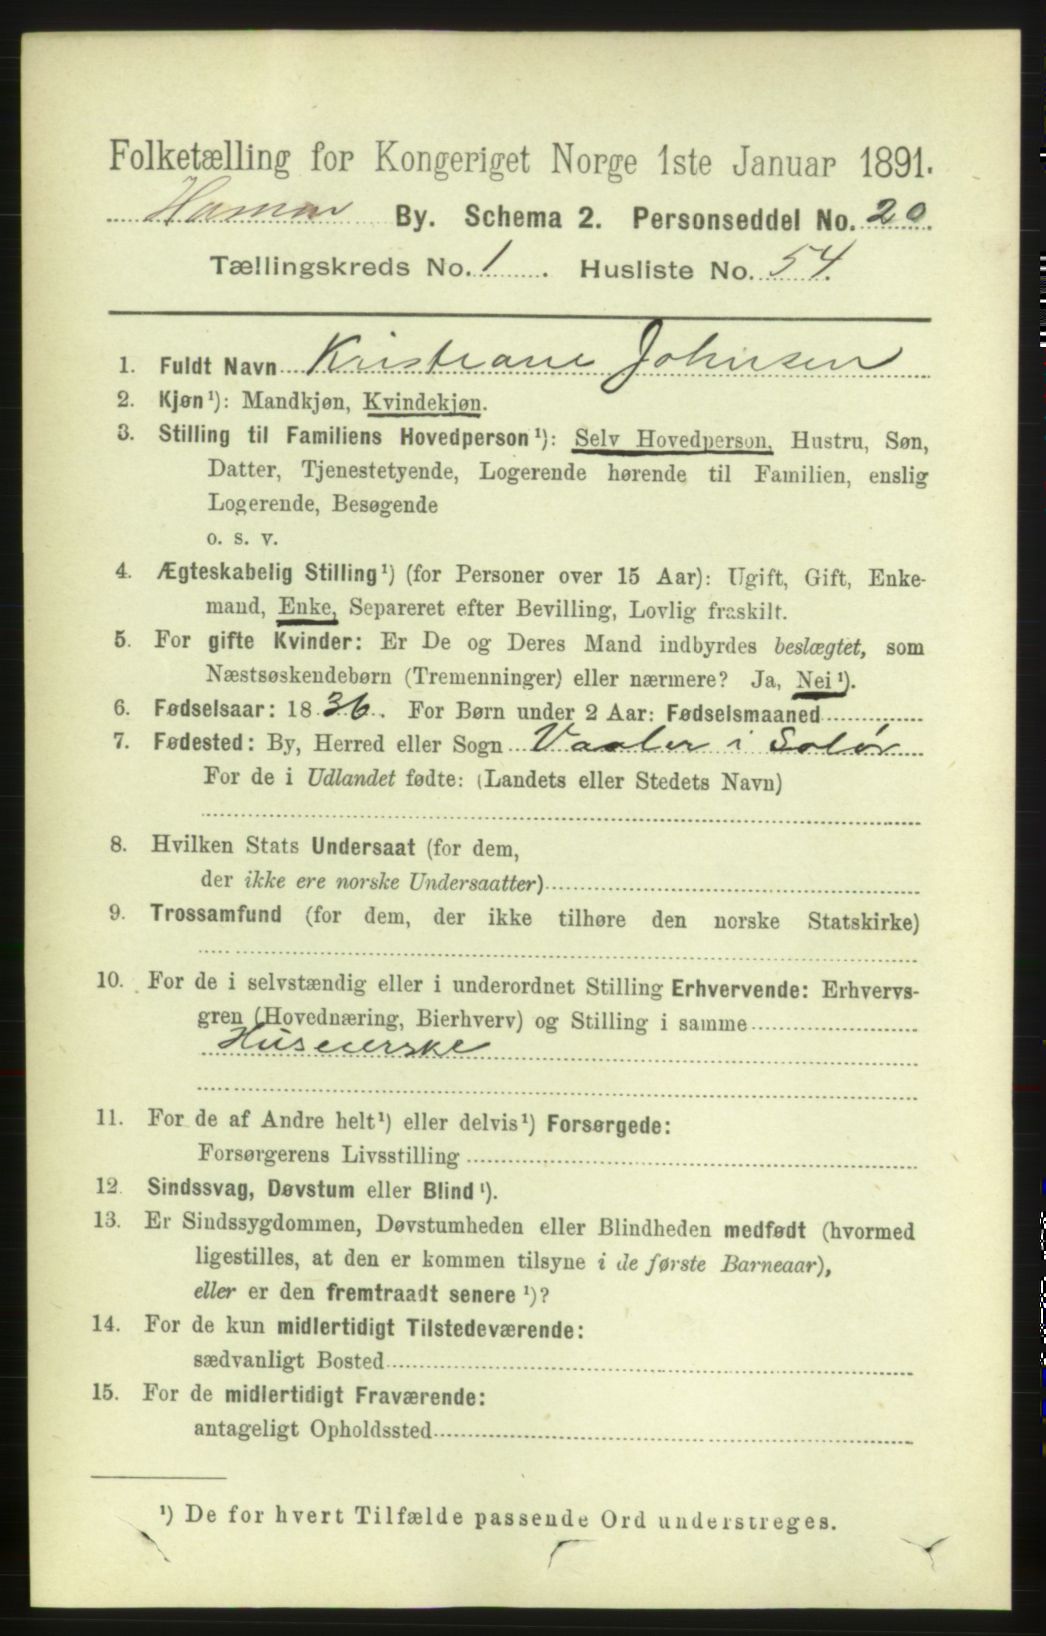 Folketælling for Kongeriget Norge 1ste Januar 1891.
Hamar By. Schema 2. Personseddel No. 20.
Tællingskreds No. 1. Husliste No. 54.
1. Fuldt Navn Kristiane Johnsen
2. Kjøn¹): Mandkjøn, Kvindekjøn.
3. Stilling til Familiens Hovedperson¹): Selv Hovedperson, Hustru, Søn,
Datter, Tjenestetyende, Logerende hørende til Familien, enslig
Logerende, Besøgende
o. s. v.
4. Ægteskabelig Stilling¹) (for Personer over 15 Aar): Ugift, Gift, Enke-
mand, Enke, Separeret efter Bevilling, Lovlig fraskilt.
5. For gifte Kvinder: Er De og Deres Mand indbyrdes beslægtet, som
Næstsøskendebørn (Tremenninger) eller nærmere? Ja, Nei¹).
6. Fødselsaar: 1836. For Børn under 2 Aar: Fødselsmaaned
7. Fødested: By, Herred eller Sogn Vaaler i Solør
For de i Udlandet fødte: (Landets eller Stedets Navn)
8. Hvilken Stats Undersaat (for dem,
der ikke ere norske Undersaatter)
9. Trossamfund (for dem, der ikke tilhøre den norske Statskirke)
10. For de i selvstændig eller i underordnet Stilling Erhvervende: Erhvervs-
gren (Hovednæring, Bierhverv) og Stilling i samme
Huseierske
11. For de af Andre helt¹) eller delvis¹) Forsørgede:
Forsørgerens Livsstilling
12. Sindssvag, Døvstum eller Blind¹).
13. Er Sindssygdommen, Døvstumheden eller Blindheden medfødt (hvormed
ligestilles, at den er kommen tilsyne i de første Barneaar),
eller er den fremtraadt senere¹)?
14. For de kun midlertidigt Tilstedeværende:
sædvanligt Bosted
15. For de midlertidigt Fraværende:
antageligt Opholdssted
¹) De for hvert Tilfælde passende Ord understreges.